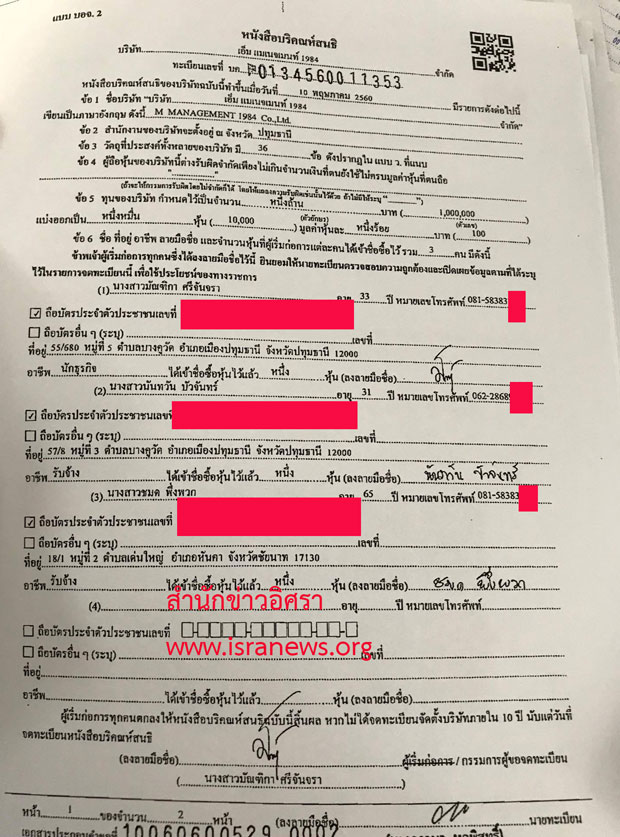 แบบ บอจ. 2
หนังสือบริคณห์สนธิ
บริษัท เอ็ม แมเนจเมนท์ 1984 จำกัด
ทะเบียนเลขที่ บค. 0134560011353
หนังสือบริคณห์สนธิของบริษัทฉบับนี้ทำขึ้นเมื่อวันที่ 10 พฤษภาคม 2560 มีรายการดังต่อไปนี้
ข้อ 1 ชื่อบริษัท "บริษัท เอ็ม แมเนจเมนท์ 1984 จำกัด"
เขียนเป็นภาษาอังกฤษ ดังนี้ M MANAGEMENT 1984 Co.,Ltd.
ข้อ 2 สำนักงานของบริษัทจะตั้งอยู่ ณ จังหวัด ปทุมธานี
ข้อ 3 วัตถุที่ประสงค์ทั้งหลายของบริษัท มี 36 ข้อ ดังปรากฏใน แบบ ว. ที่แนบ
ข้อ 4 ผู้ถือหุ้นของบริษัทนี้ต่างรับผิดจำกัดเพียงไม่เกินจำนวนเงินที่ตนยังใช้ไม่ครบมูลค่าหุ้นที่ตนถือ
ข้อ 5 ทุนของบริษัท กำหนดไว้เป็นจำนวน หนึ่งล้าน บาท ( 1,000,000 )
(ตัวอักษร) (ตัวเลข)
แบ่งออกเป็น หนึ่งหมื่น หุ้น ( 10,000 ) มูลค่าหุ้นละ หนึ่งร้อย บาท ( 100 )
ข้อ 6 ชื่อ ที่อยู่ อาชีพ ลายมือชื่อ และจำนวนหุ้นที่ผู้เริ่มก่อการแต่ละคนได้เข้าชื่อซื้อไว้ รวม 3 คน มีดังนี้
ข้าพเจ้าผู้เริ่มก่อการทุกคนซึ่งได้ลงลายมือชื่อไว้นี้ ยินยอมให้นายทะเบียนตรวจสอบความถูกต้องและเปิดเผยข้อมูลตามที่ได้ระบุ
ไว้ในรายการจดทะเบียนนี้ เพื่อใช้ประโยชน์ของทางราชการ
(1) นางสาวมัณฑิกา ศรีจันจรา อายุ 33 ปี หมายเลขโทรศัพท์ 081-58383
ถือบัตรประจำตัวประชาชนเลขที่
ถือบัตรอื่น ๆ (ระบุ) เลขที่
ที่อยู่ 55/680 หมู่ที่ 5 ตำบลบางคูวัด อำเภอเมืองปทุมธานี จังหวัดปทุมธานี 12000
อาชีพ นักธุรกิจ ได้เข้าชื่อซื้อหุ้นไว้แล้ว หนึ่ง หุ้น (ลงลายมือชื่อ)
(2) นางสาวนันทวัน บัวจันทร์ อายุ 31 ปี หมายเลขโทรศัพท์ 062-2868
ถือบัตรประจำตัวประชาชนเลขที่
ถือบัตรอื่น ๆ (ระบุ) เลขที่
ที่อยู่ 57/8 หมู่ที่ 3 ตำบลบางคูวัด อำเภอเมืองปทุมธานี จังหวัดปทุมธานี 12000
อาชีพ รับจ้าง ได้เข้าชื่อซื้อหุ้นไว้แล้ว หนึ่ง หุ้น (ลงลายมือชื่อ) นันทวัน บัวจันทร์
(3) นางสาวชมด พึ่งพวก อายุ 65 ปี หมายเลขโทรศัพท์ 081-58383
ถือบัตรประจำตัวประชาชนเลขที่
ถือบัตรอื่น ๆ (ระบุ) เลขที่
ที่อยู่ 18/1 หมู่ที่ 2 ตำบลเด่นใหญ่ อำเภอหันคา จังหวัดชัยนาท 17130
อาชีพ รับจ้าง ได้เข้าชื่อซื้อหุ้นไว้แล้ว หนึ่ง หุ้น (ลงลายมือชื่อ) ชมด พึ่งพวก
สำนักข่าวอิศรา
(4) อายุ ปี หมายเลขโทรศัพท์
ถือบัตรประจำตัวประชาชนเลขที่
www.isranews.org
ถือบัตรอื่น ๆ (ระบุ) เลขที่
ที่อยู่
อาชีพ ได้เข้าชื่อซื้อหุ้นไว้แล้ว หุ้น (ลงลายมือชื่อ)
ผู้เริ่มก่อการทุกคนตกลงให้หนังสือบริคณห์สนธิฉบับนี้สิ้นผล หากไม่ได้จดทะเบียนจัดตั้งบริษัทภายใน 10 ปี นับแต่วันที่
จดทะเบียนหนังสือบริคณห์สนธิ
(ลงลายมือชื่อ) ผู้เริ่มก่อการ / กรรมการผู้ขอจดทะเบียน
( นางสาวมัณฑิกา ศรีจันจรา )
หน้า 1 ของจำนวน 2 หน้า (ลงลายมือชื่อ) นายทะเบียน
เอกสารประกอบคำขอที่ 10060600529 0002